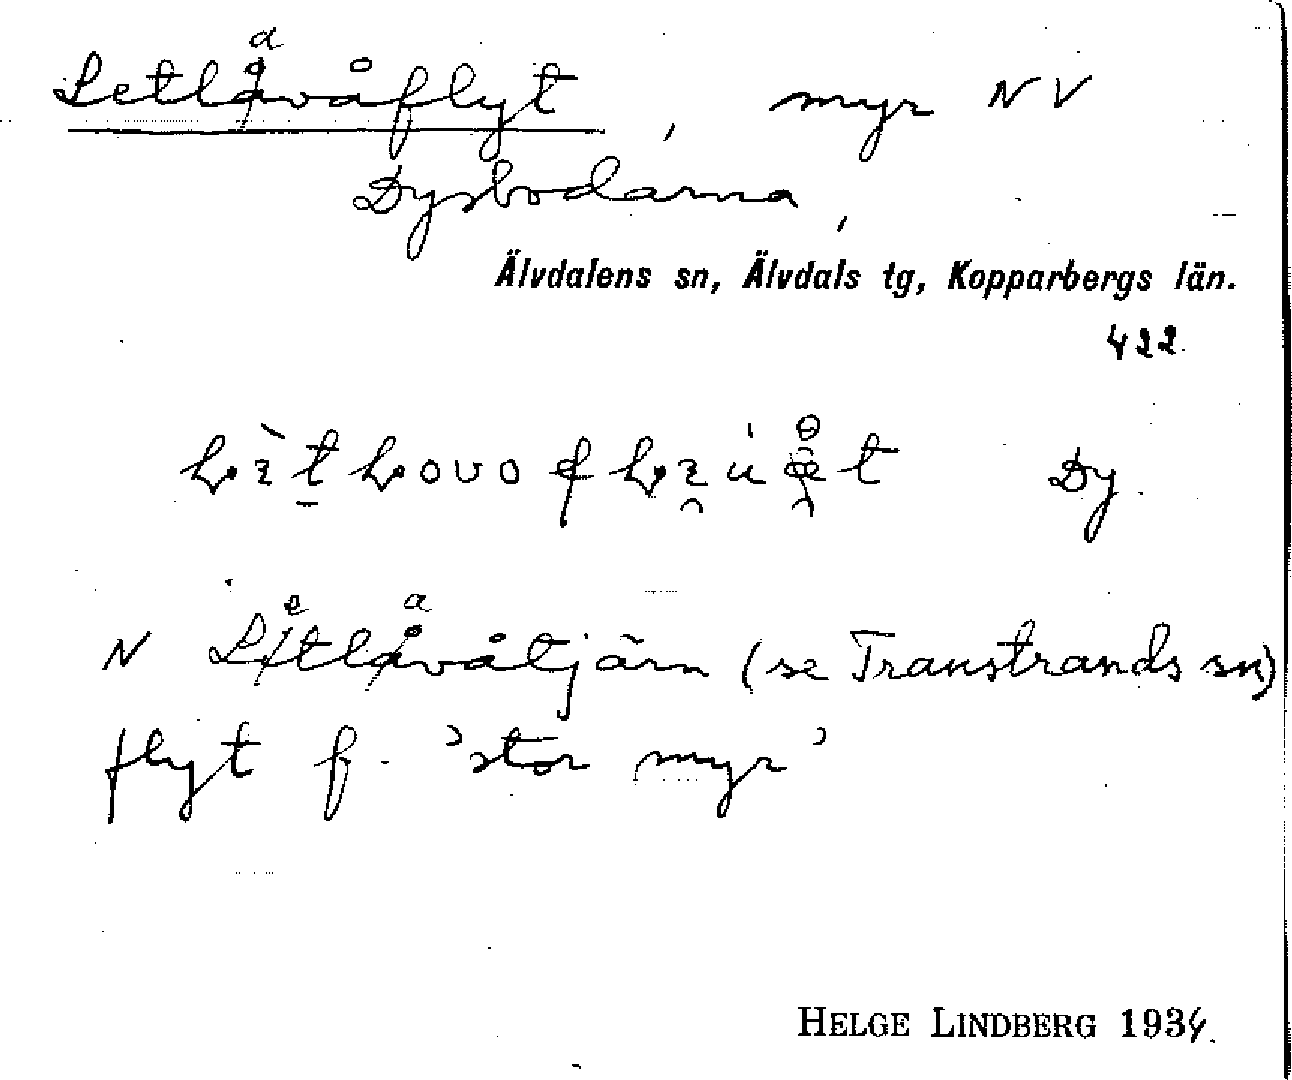 Letlavåflyt, myr NV
Dysbodarna,
Älvdalens sn, Älvdals tg, Kopparbergs län.
422
Dy.
N Letlavåtjärn (se Transtrands sn)
flyt f. 'stor myr'
HELGE LINDBERG 1934.